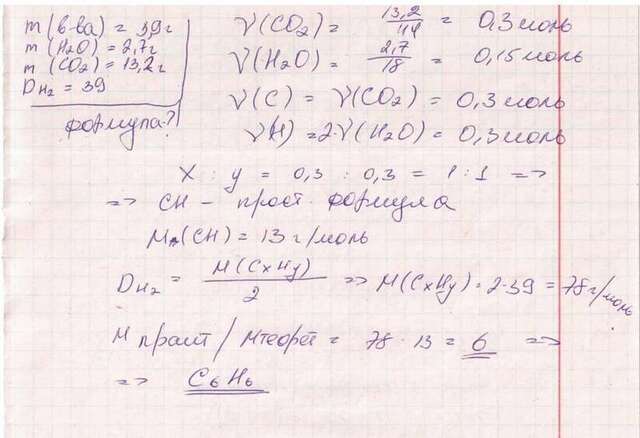 m (в-ва) = 3,9г
m (H₂O) = 2,7г
m (CO₂) = 13,2г
D H₂ = 39
формула-?
ν(CO₂) = 13,2/44 = 0,3 моль
ν(H₂O) = 2,7/18 = 0,15 моль
ν(C) = ν(CO₂) = 0,3 моль
ν(H) = 2·ν(H₂O) = 0,3 моль
X : y = 0,3 : 0,3 = 1 : 1 =>
=> CH - прост. формула
M (CH) = 13 г/моль
D H₂ = M(CxHy)/2 => M(CxHy) = 2·39 = 78 г/моль
M практ / Mтеорет = 78 · 13 = 6 =>
=> C₆H₆